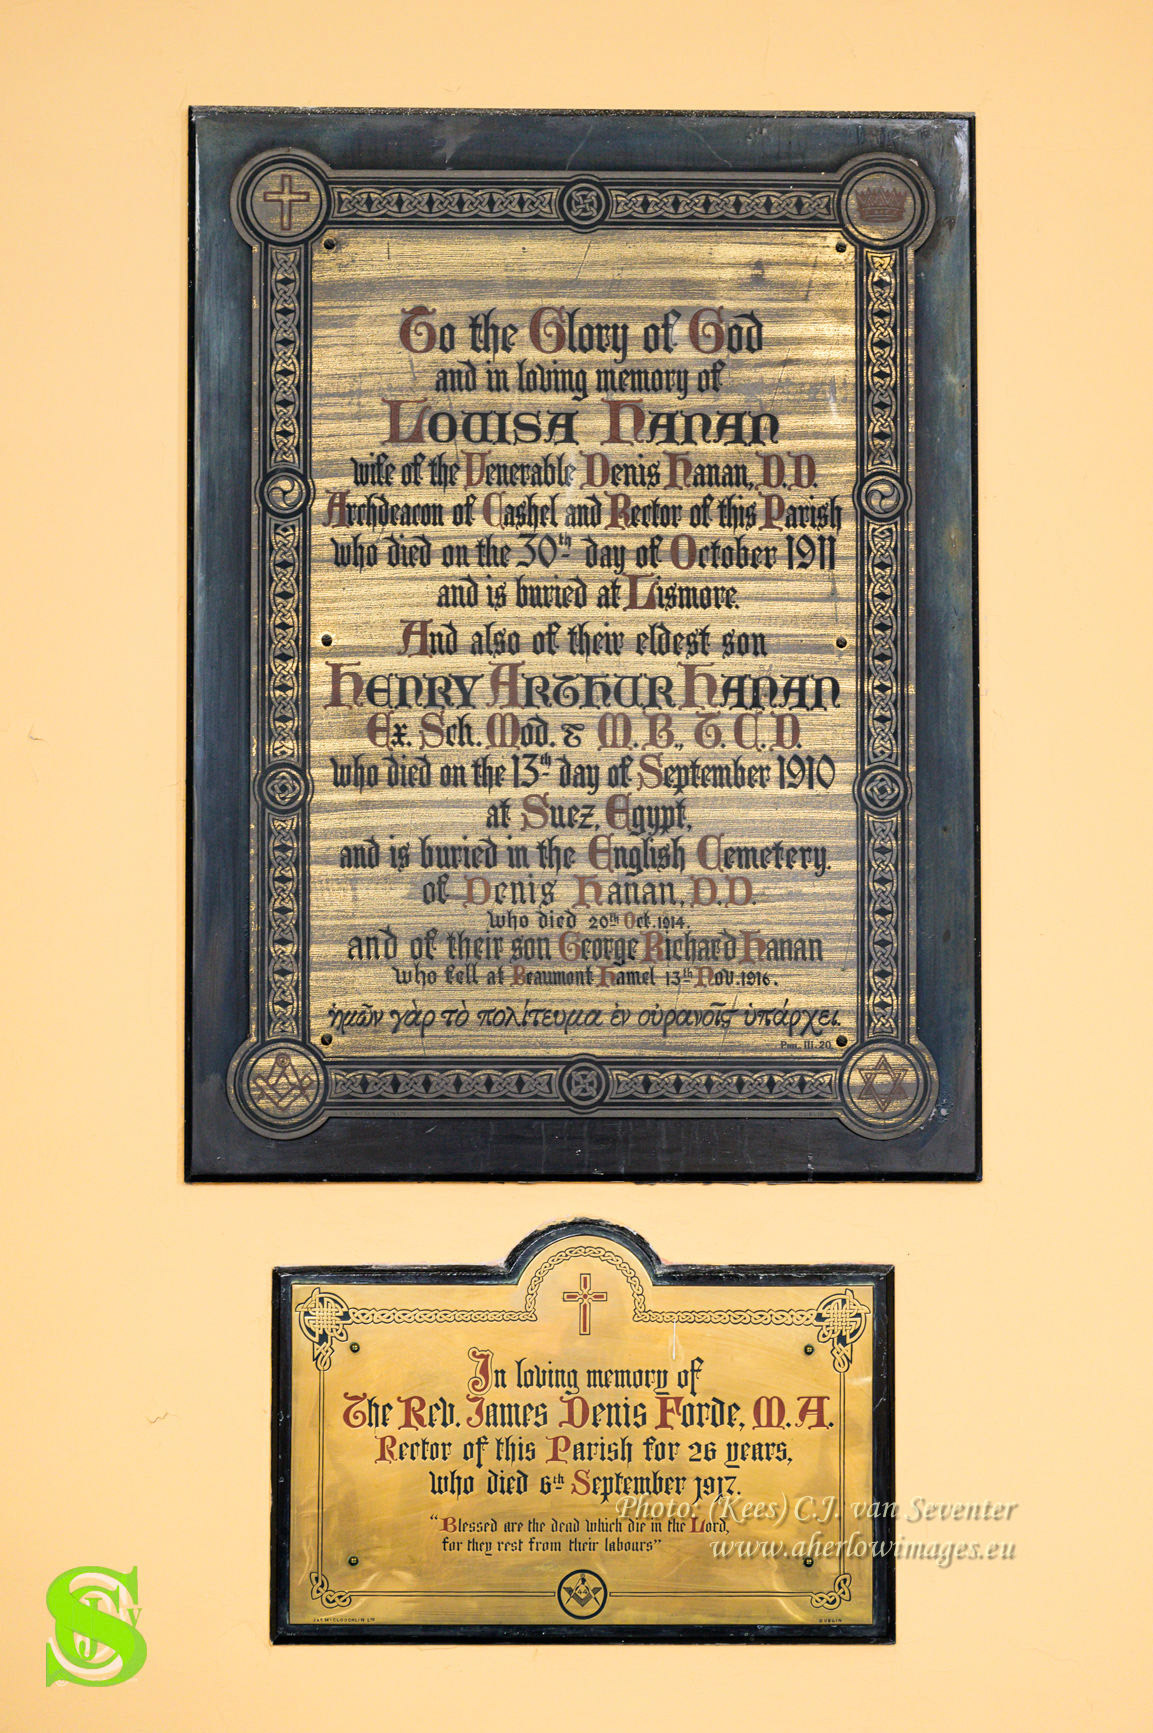 To the Glory of God
and in loving memory of
LOUISA HANAN
wife of the Venerable Denis Hanan, D.D.
Archdeacon of Cashel and Rector of this Parish
who died on the 30th day of October 1911
and is buried at Lismore.
And also of their eldest son
HENRY ARTHUR HANAN
Ex. Sch. Mod. & M.B., T.C.D.
who died on the 13th day of September 1910
at Suez, Egypt,
and is buried in the English Cemetery.
of Denis Hanan, D.D.
who died 20th Oct. 1914.
and of their son George Richard Hanan
who fell at Beaumont Hamel 13th Nov. 1916.
ἡμῶν γὰρ τὸ πολίτευμα ἐν οὐρανοῖς ὑπάρχει.
iii. 20.
DUBLIN
In loving memory of
The Rev. James Denis Forde, M.A.
Rector of this Parish for 26 years,
who died 6th September 1917.
"Blessed are the dead which die in the Lord,
for they rest from their labours"
Photo: (Kees) C.J. van Seventer
www.aherlowimages.eu
JAS McGLOUGHLIN LTD
DUBLIN